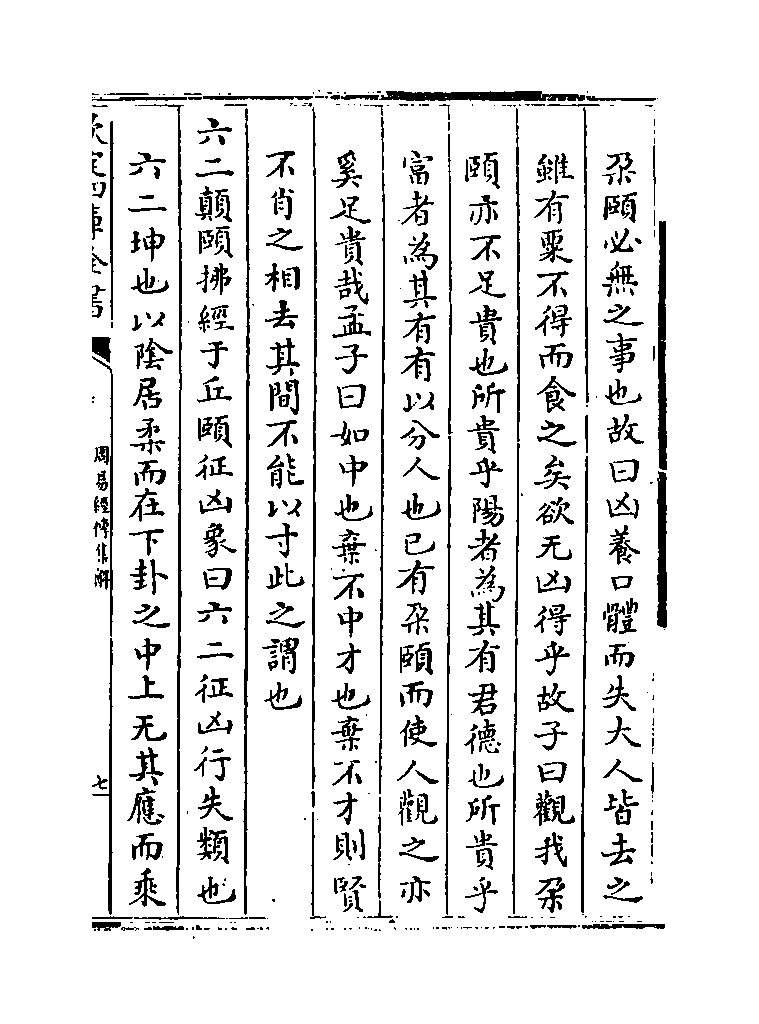 朶頤必無之事也故曰凶養口體而失大人皆去之
雖有粟不得而食之矣欲无凶得乎故子曰觀我朶
頤亦不足貴也所貴乎陽者為其有君德也所貴乎
富者為其有有以分人也已有朶頤而使人觀之亦
奚足貴哉孟子曰如中也棄不中才也棄不才則賢
不肖之相去其間不能以寸此之謂也
六二顛頤拂經于丘頤征凶象曰六二征凶行失類也
六二坤也以陰居柔而在下卦之中上无其應而乘
欽定四庫全書
周易經傳集解
七